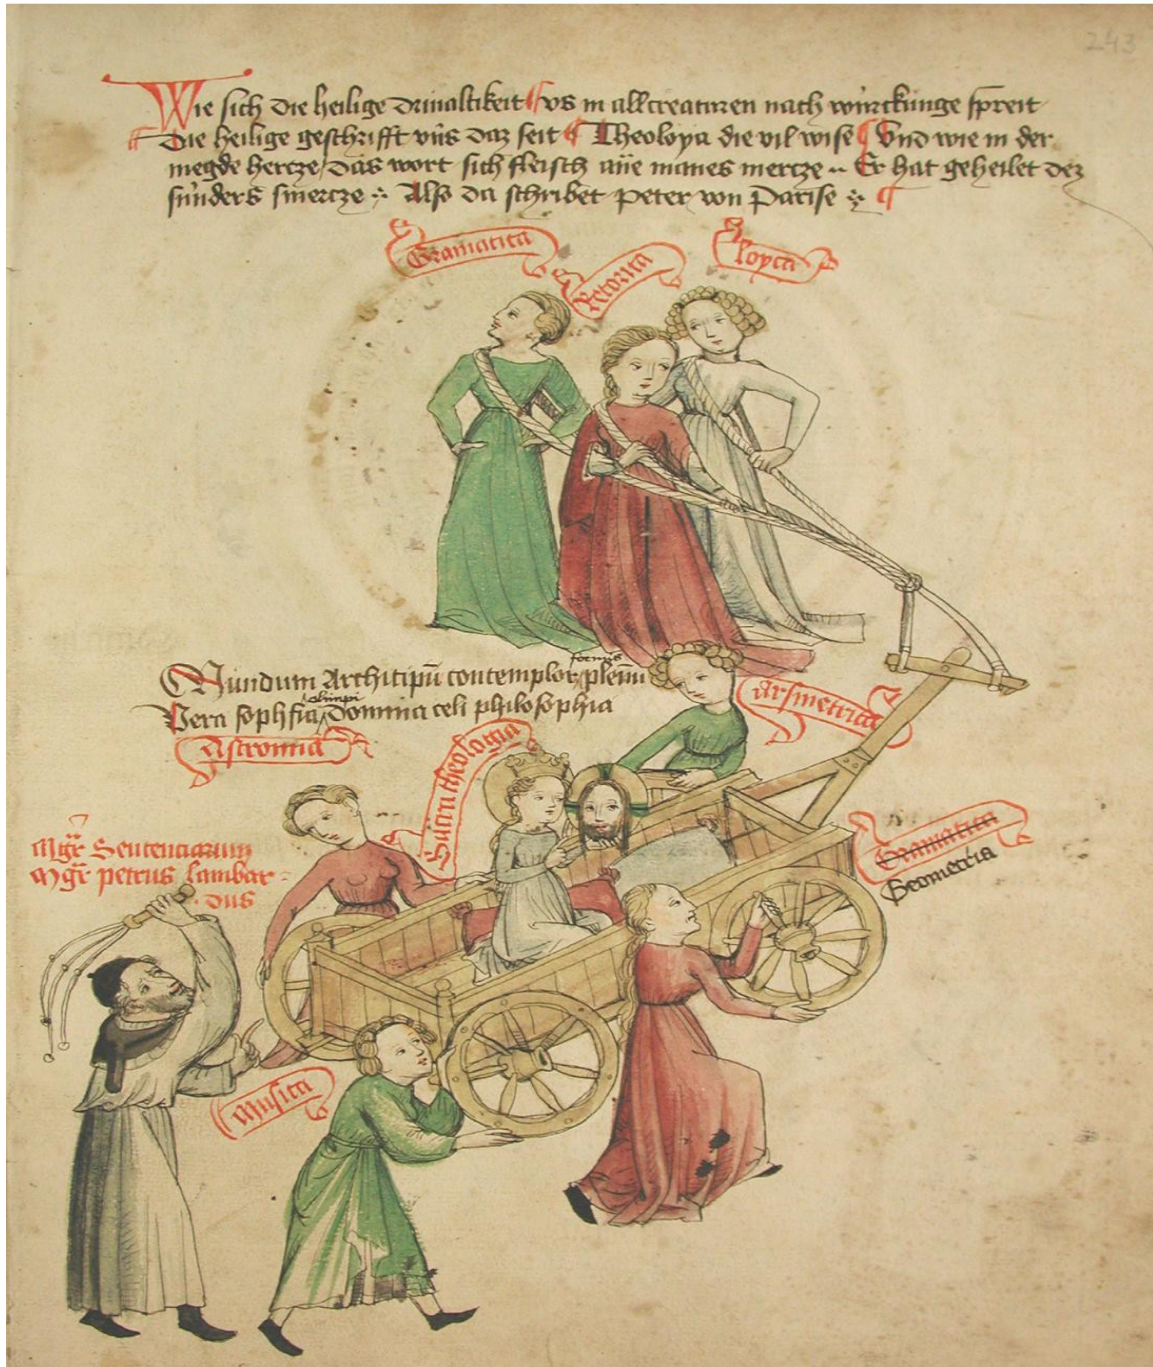 243
Wie sich die heilige drinaltikeit vs in all creaturen nach würckunge spreit
Die heilige geschrifft vns daz seit Theoloya die vil wise Vnd wie in der
megde hercze das wort sich fleisch ane manes mercze Er hat geheilet dez
sunders smercze Also da schribet peter von Parise
Gramatica
Retorica
loyca
Mundum Architipū contemplor formis plenū
Vera sophsia olimpi Domina celi philosophia
Arsmetrica
Astromia
Sacra theologia
Gramatica
Geometria
Mgr̄ Sentenciarum
Mgr̄ petrus lambar-
dus
Musica